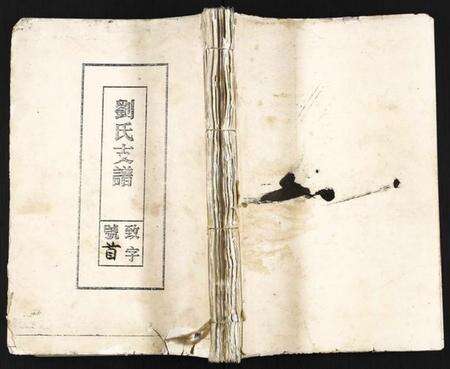 劉氏支譜
致字
號首